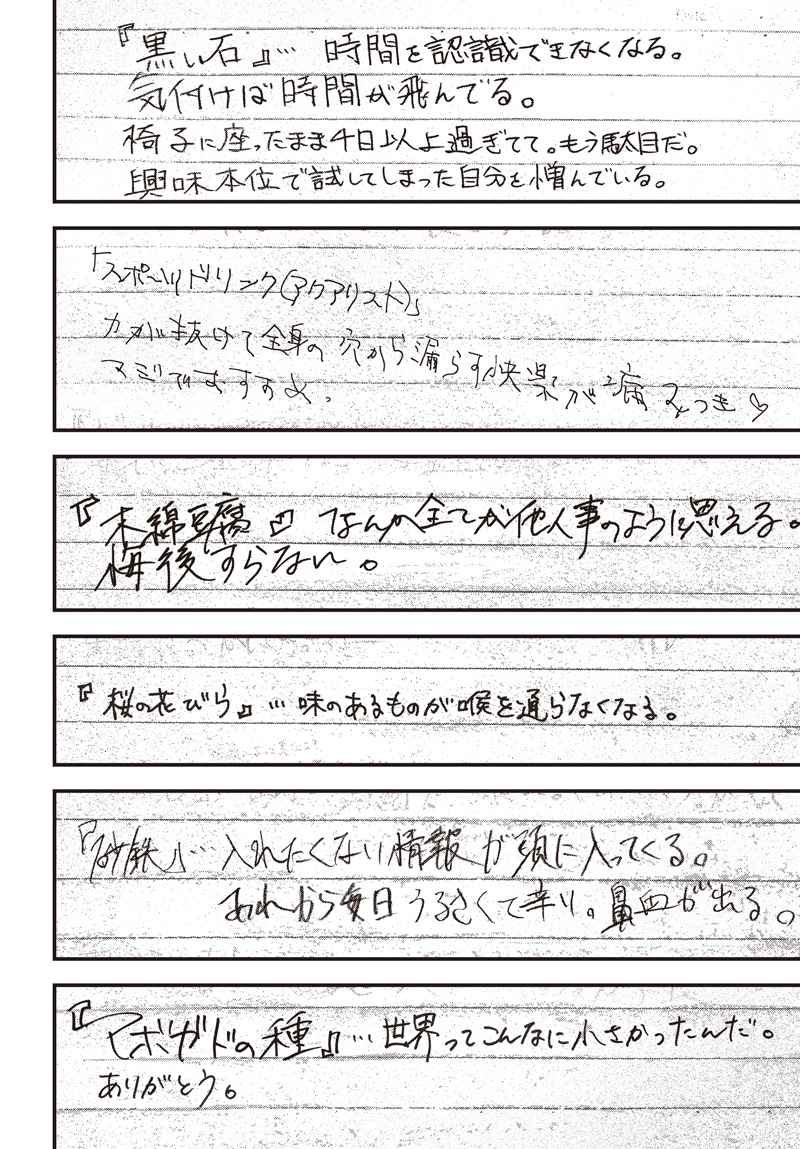 『黒い石』… 時間を認識できなくなる。
気付けば時間が飛んでる。
椅子に座ったまま4日以上過ぎてて。もう駄目だ。
興味本位で試してしまった自分を憎んでいる。
「スポーツドリンク(アクアリスト)」
力が抜けて全身の穴から漏らす快楽が病みつき♡
マジでおすすめ。
『木綿豆腐』 なんか全てが他人事のように思える。
悔後すらない。
『桜の花びら』… 味のあるものが喉を通らなくなる。
『砂鉄』… 入れたくない情報が頭に入ってくる。
あれから毎日うるさくて辛い。鼻血が出る。
『アボガドの種』… 世界ってこんなに小さかったんだ。
ありがとう。